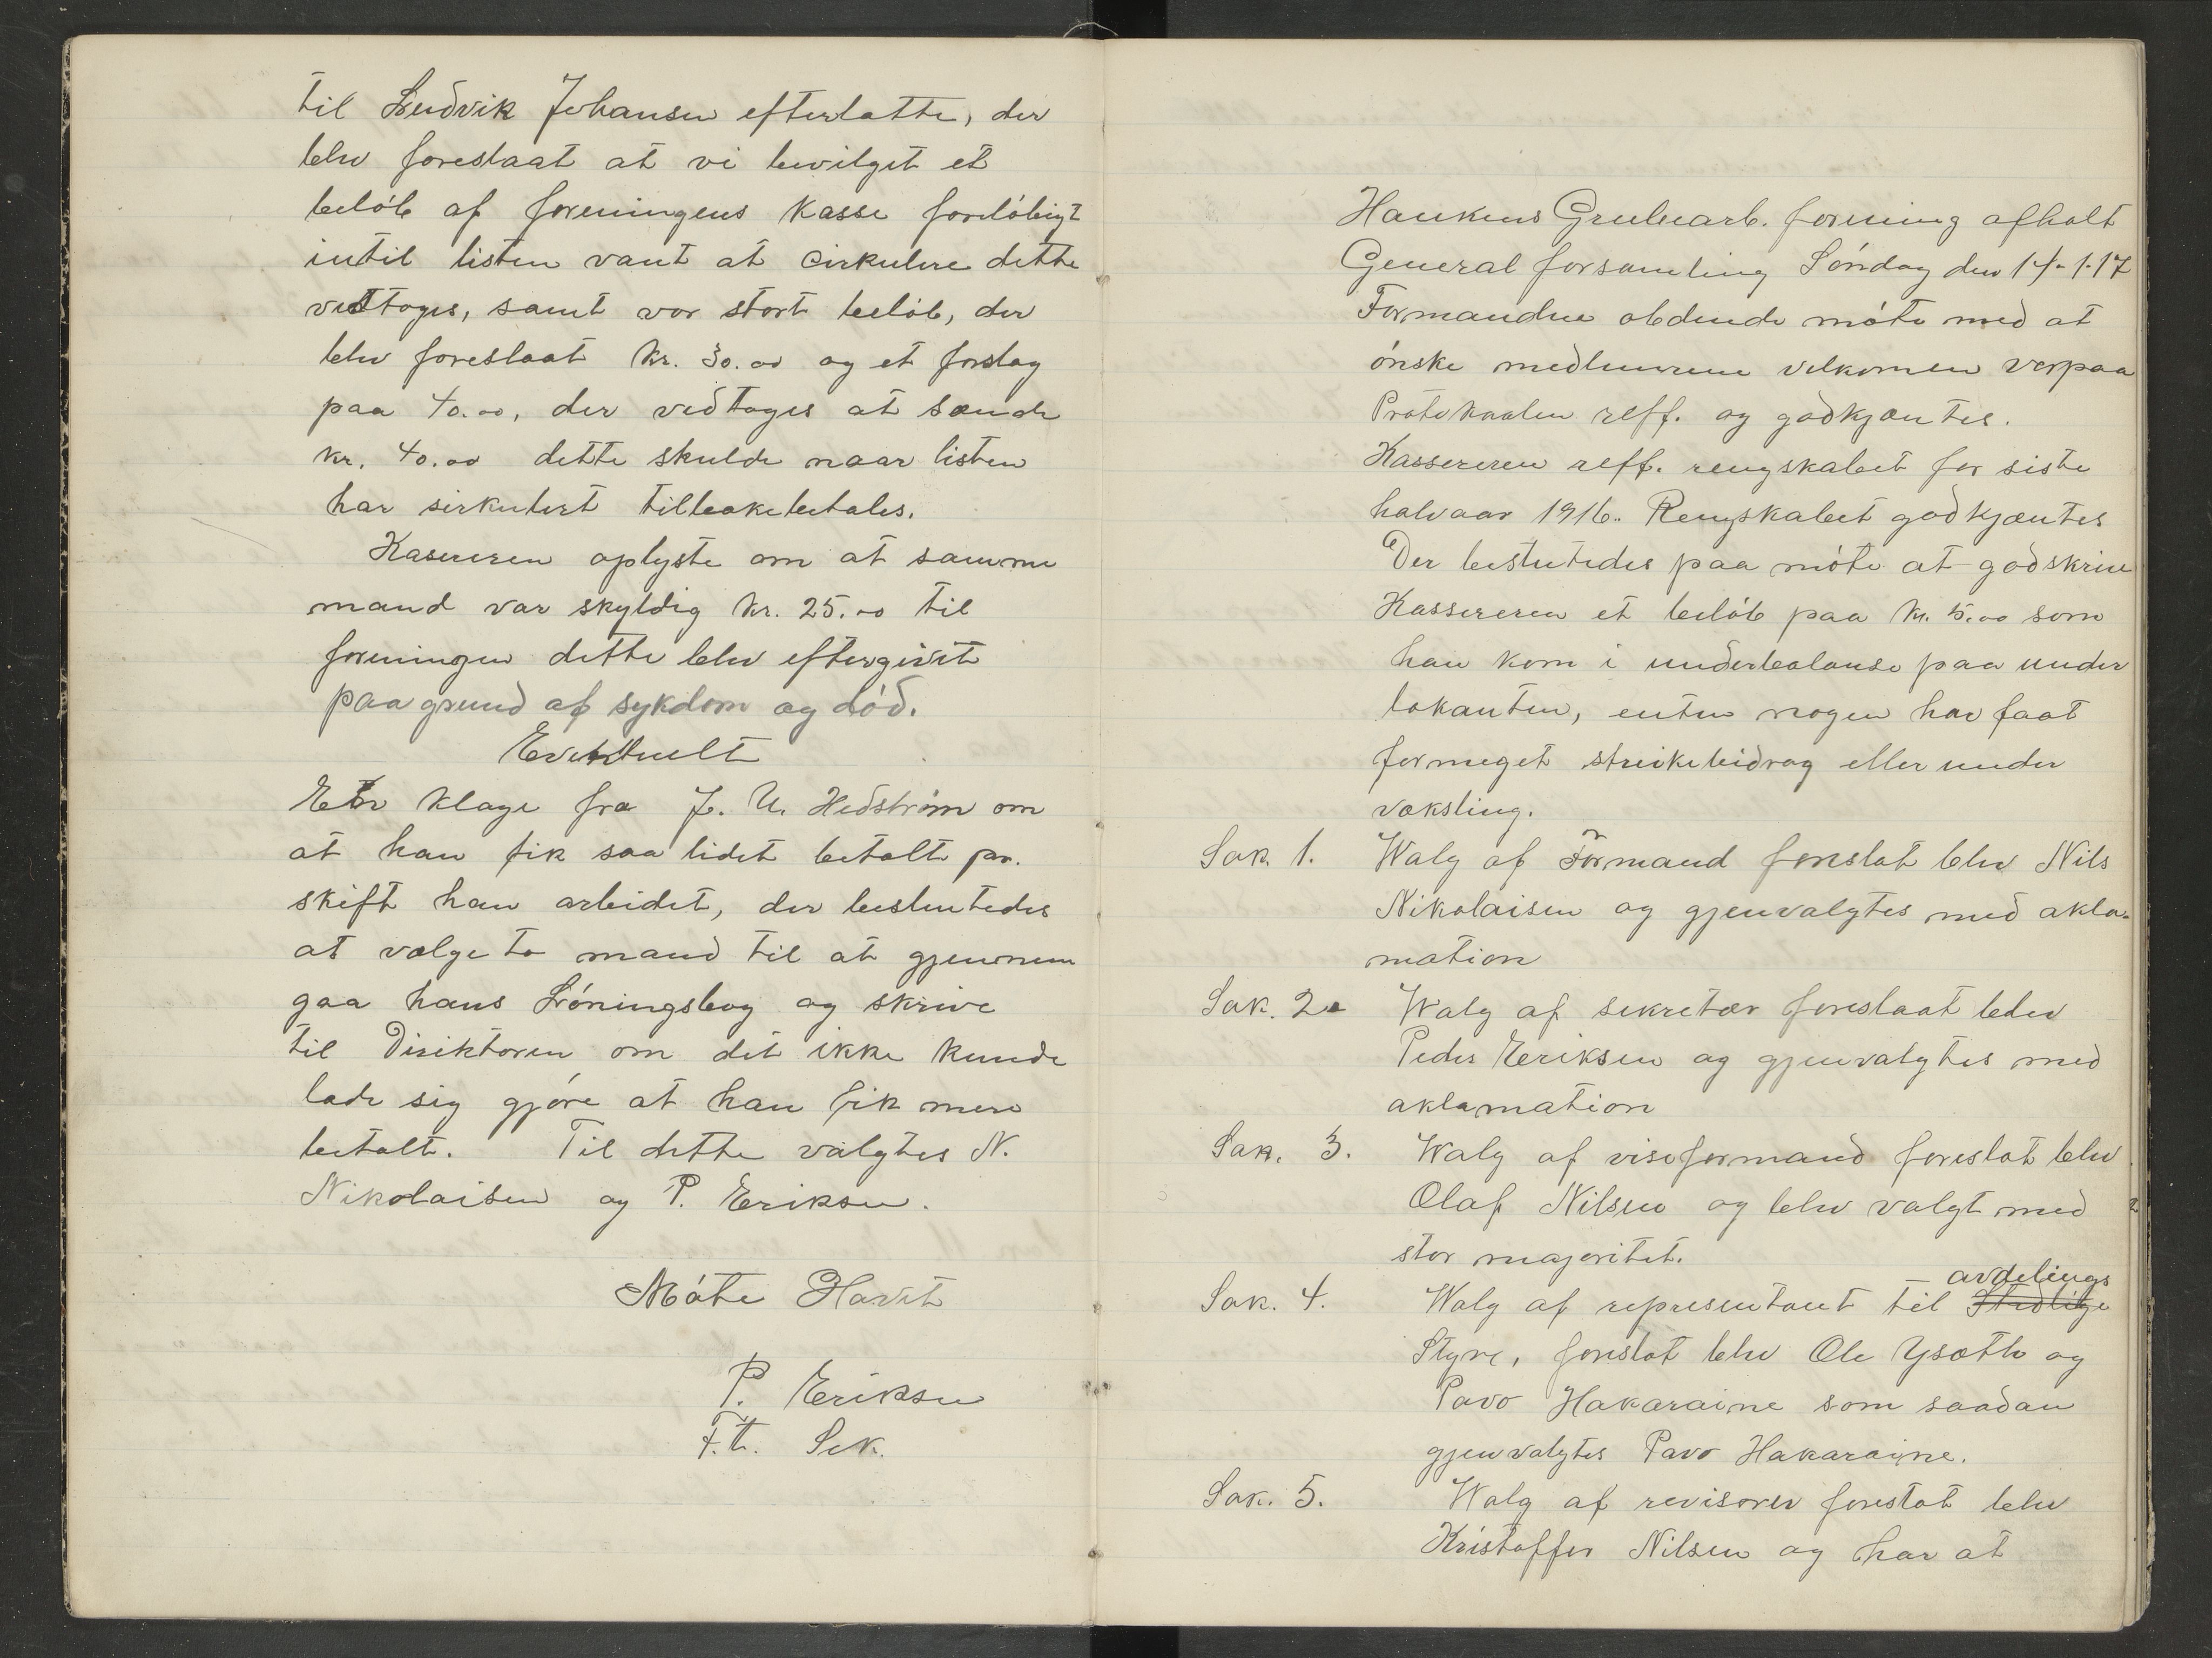 til Ludvik Johansen efterlatte, der
blev foreslaat at vi bevilget et
beløb af foreningens Kasse foreløbigt
intil listen vant at cirkulere dette
vedtoges, samt vor stort beløb, der
blev foreslaat kr. 30.00 og et forslag
paa 40.00, der vedtoges at sænde
kr. 40.00 dette skulde naar listen
har sirkulert tilbakebetales.
Kasereren oplyste om at samme
mand var skyldig kr. 25.00 til
foreningen dette blev eftergivet
paa grund af sykdom og død.
Eventuelt
En klage fra J. U. Hedstrøm om
at han fik saa lidet betalt pr.
skift han arbeidet, der besluttedes
at vælge to mand til at gjennem
gaa hans Løningsbog og skrive
til Direktøren om det ikke kunde
lade sig gjøre at han fik mere
betalt. Til dette valgtes N.
Nikolaisen og P. Eriksen.
Møte Hævet
P. Eriksen
F.t. Sek.
Haukens Grubearb. forening afholt
General forsamling Søndag den 14-1-17
Formanden obdende møte med at
ønske medlemmene velkomen verpaa
Protokaalen reff. og godkjæntes.
Kassereren reff. rengskabet for siste
halvaar 1916. Rengskabet godkjæntes
Der beslutedes paa møte at godskrive
Kassereren et beløb paa kr. 5.00 som
han kom i underbalanse paa under
lokauten, enten nogen har faat
formeget streikebidrag eller under
væksling.
Sak 1. Walg af Formand foreslat blev Nils
Nikolaisen og gjenvalgtes med akla-
mation
Sak. 2. Walg af sekretær foreslaat blev
Peder Eriksen og gjenvalgtes med
aklamation
Sak. 3. Walg af viseformand foreslat blev
Olaf Nilsen og blev valgt med
stor majoritet.
avdelings
Sak. 4. Walg af representant til Stedlige
Styre, foreslat blev Ole Ysæth og
Pavo Hakaraine som saadan
gjenvalgtes Pavo Hakaraine.
Sak. 5. Walg af revisorer foreslat blev
Kristoffer Nilsen og har at